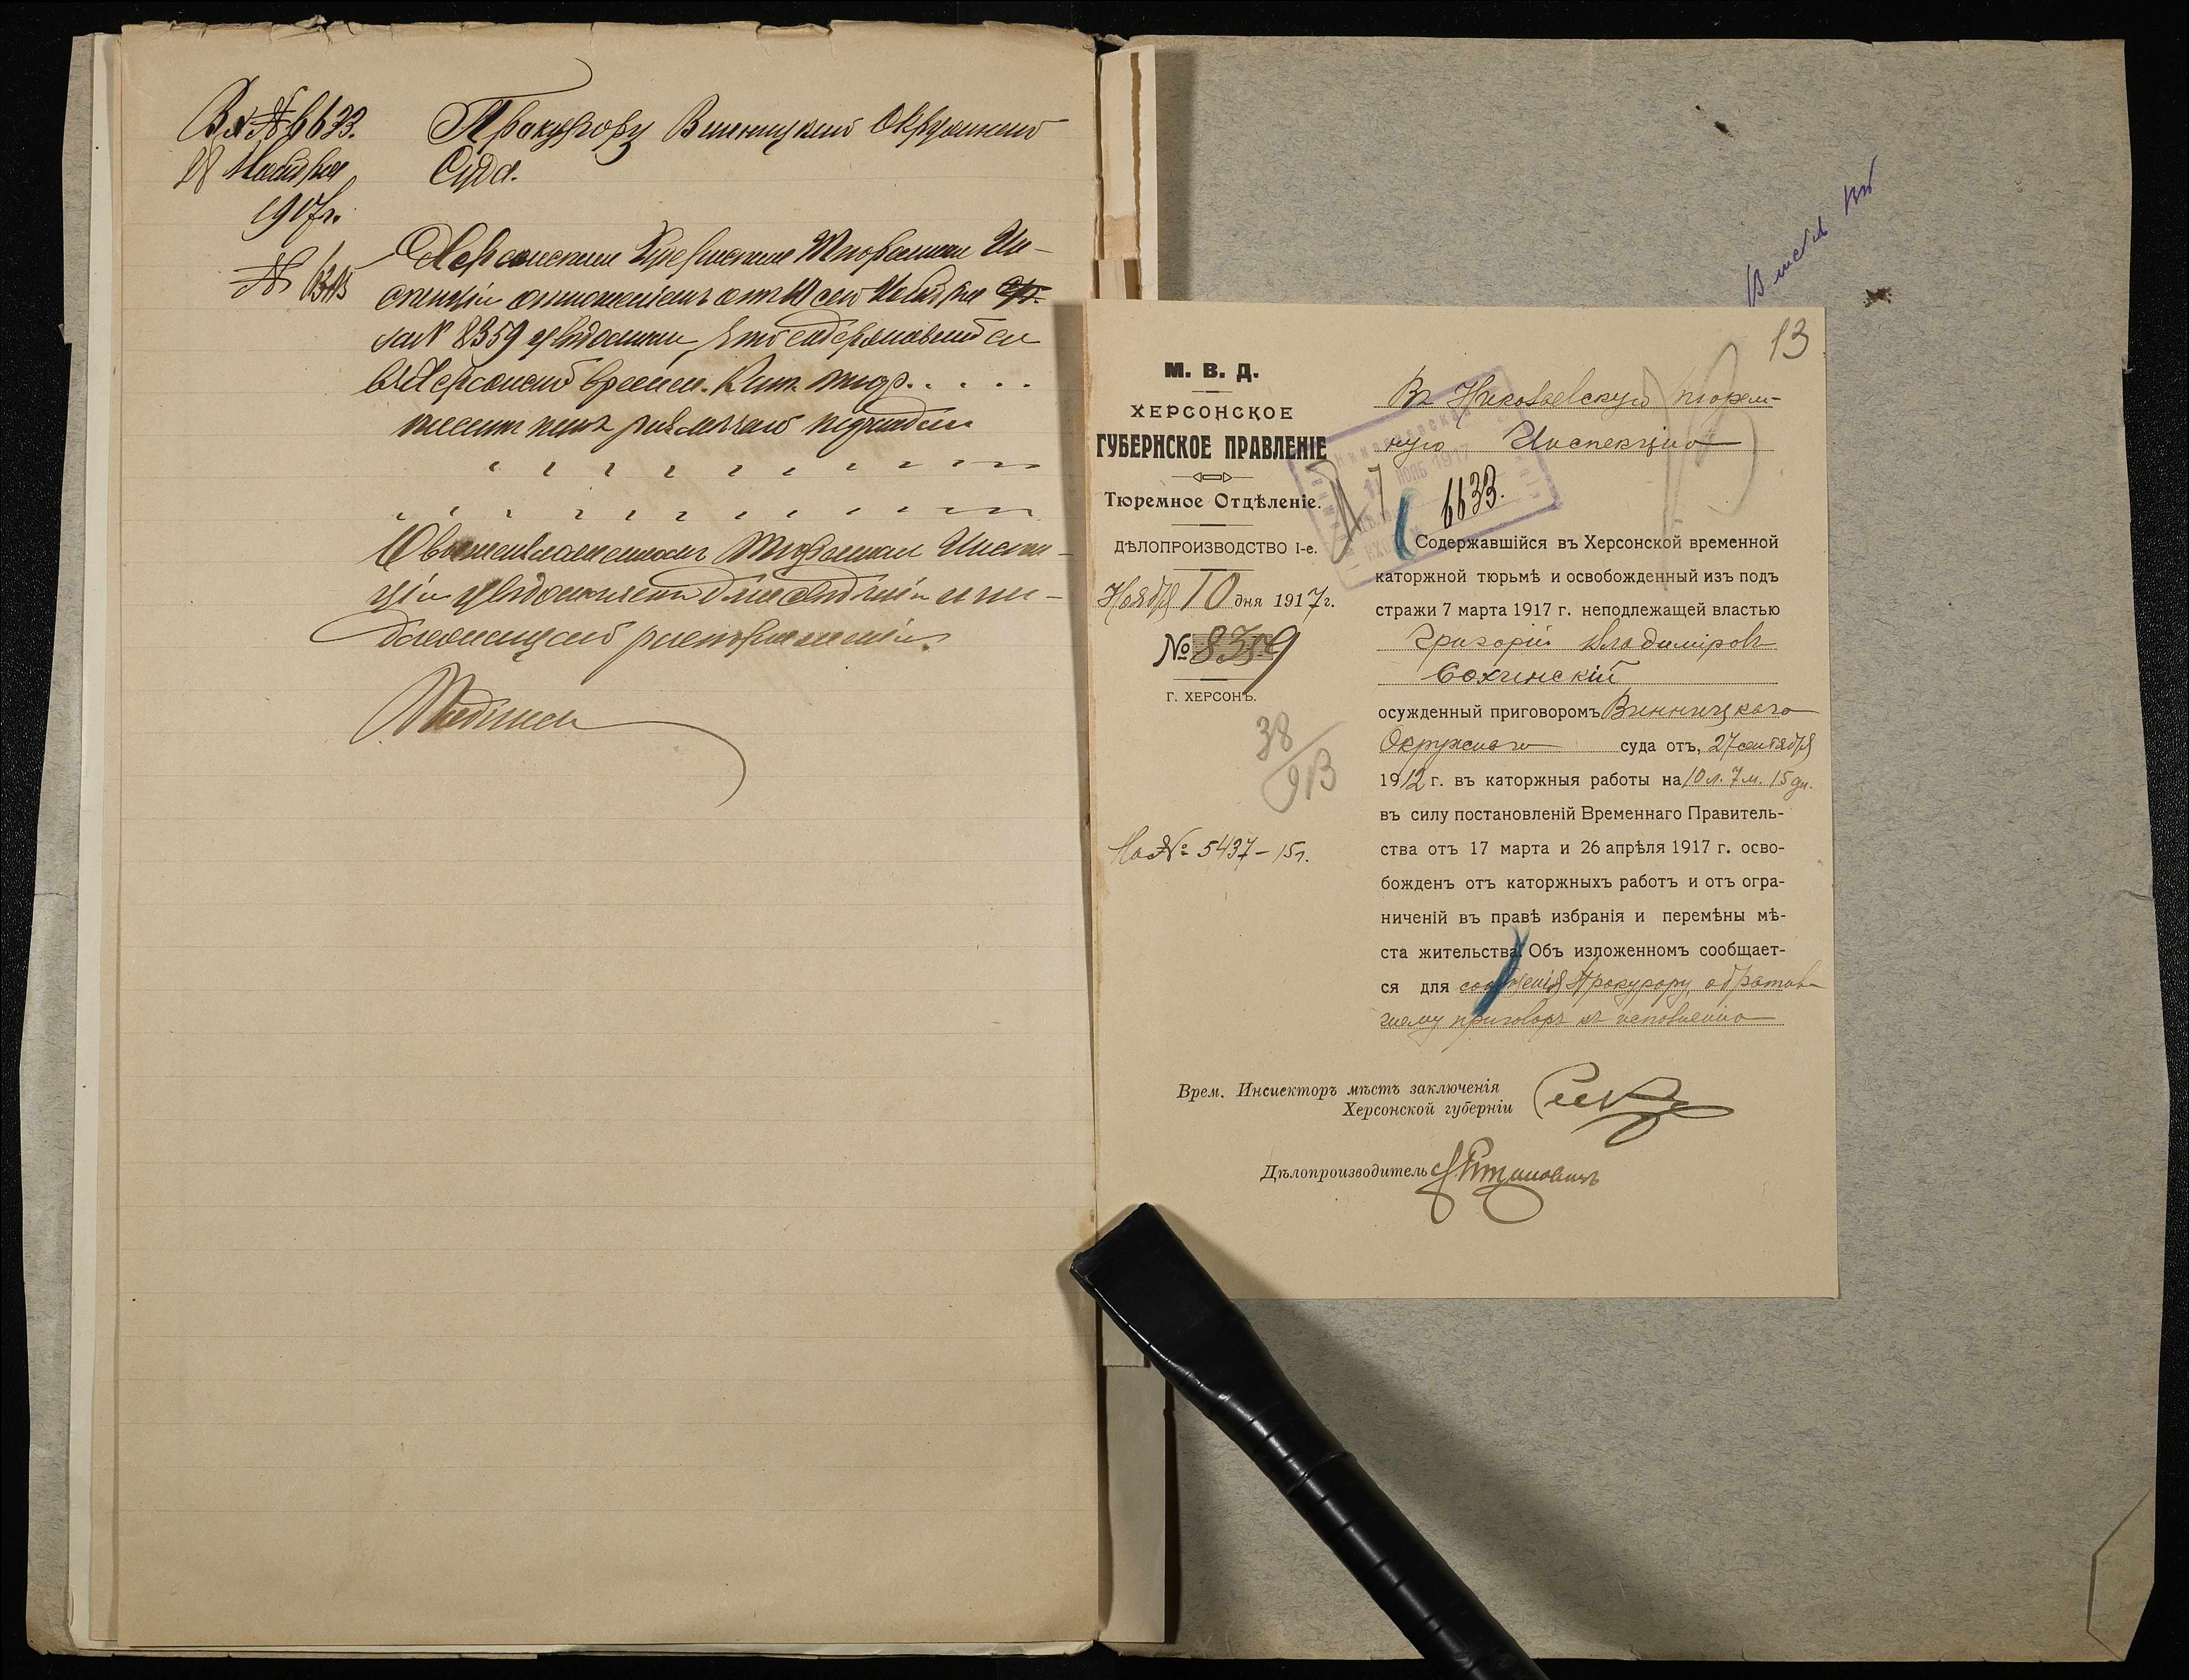 Вх № 6633.
28 Ноября
1917г.
Прокурору Винницкаго Окружнаго
Суда.
Херсонская Губернская Тюремная Ин-
спекція отношеніемъ отъ 10 сего Ноября
за № 8359 увѣдомила, что содержавшійся
въ Херсонской времен. Кат. тюр. . . . .
О вышеизложенномъ Тюремная Инспек-
ція увѣдомляетъ для свѣдѣнія и
распоряженія.
13
М. В. Д.
ХЕРСОНСКОЕ
ГУБЕРНСКОЕ ПРАВЛЕНІЕ
Тюремное Отдѣленіе.
ДѢЛОПРОИЗВОДСТВО I-е.
Ноября 10 дня 1917г.
№ 8359
г. ХЕРСОНЪ.
38
913
На № 5437 – 15г.
Въ Николаевскую тюрем-
ную Инспекцію
6633.
Содержавшійся въ Херсонской временной
каторжной тюрьмѣ и освобожденный изъ подъ
стражи 7 марта 1917 г. неподлежащей властью
Григорій Владиміровъ
Сохинскій
осужденный приговоромъ Винницкаго
Окружнаго суда отъ, 27 сентября
1912 г. въ каторжныя работы на 10 л. 7 м. 15 дн.
въ силу постановленій Временнаго Правитель-
ства отъ 17 марта и 26 апрѣля 1917 г. осво-
божденъ отъ каторжныхъ работъ и отъ огра-
ниченій въ правѣ избранія и перемѣны мѣ-
ста жительства. Объ изложенномъ сообщает-
ся для сообщенія Прокурору, обратив-
шему приговоръ къ исполненію
Врем. Инспекторъ мѣстъ заключенія
Херсонской губерніи
Дѣлопроизводитель